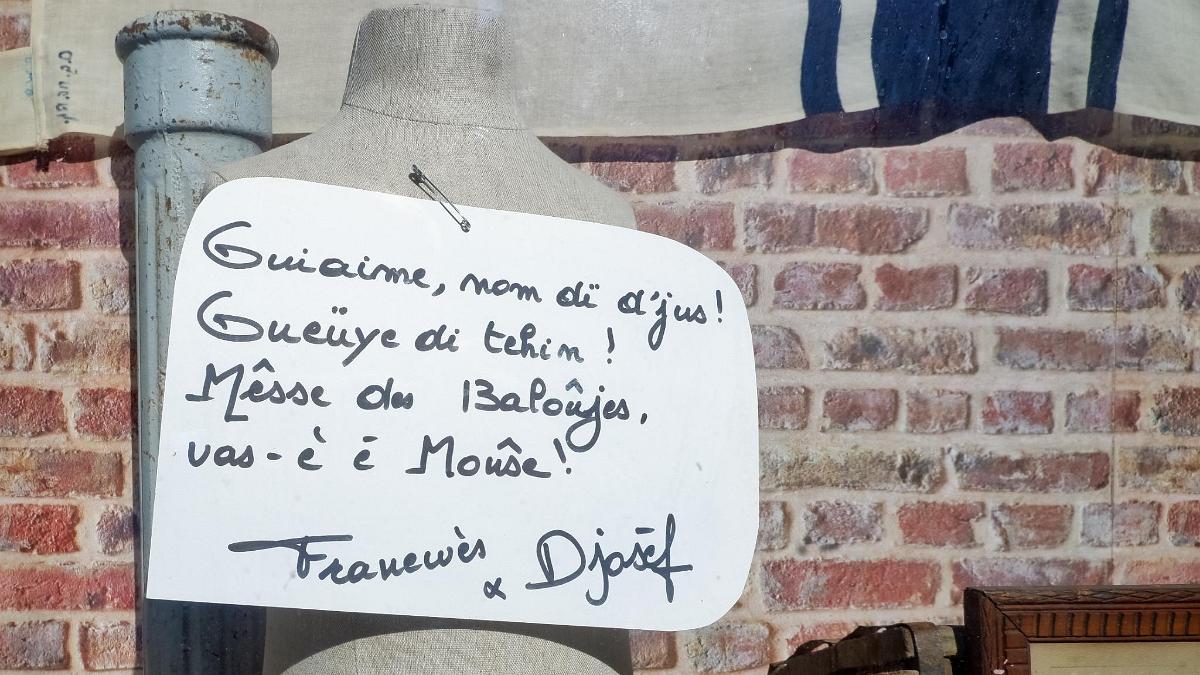 Guiaime, nom dï d'jus !
Gueüye di tchin !
Mêsse des Baloûjes,
vas-è ē Moûse !
Francwès
& Djosēf